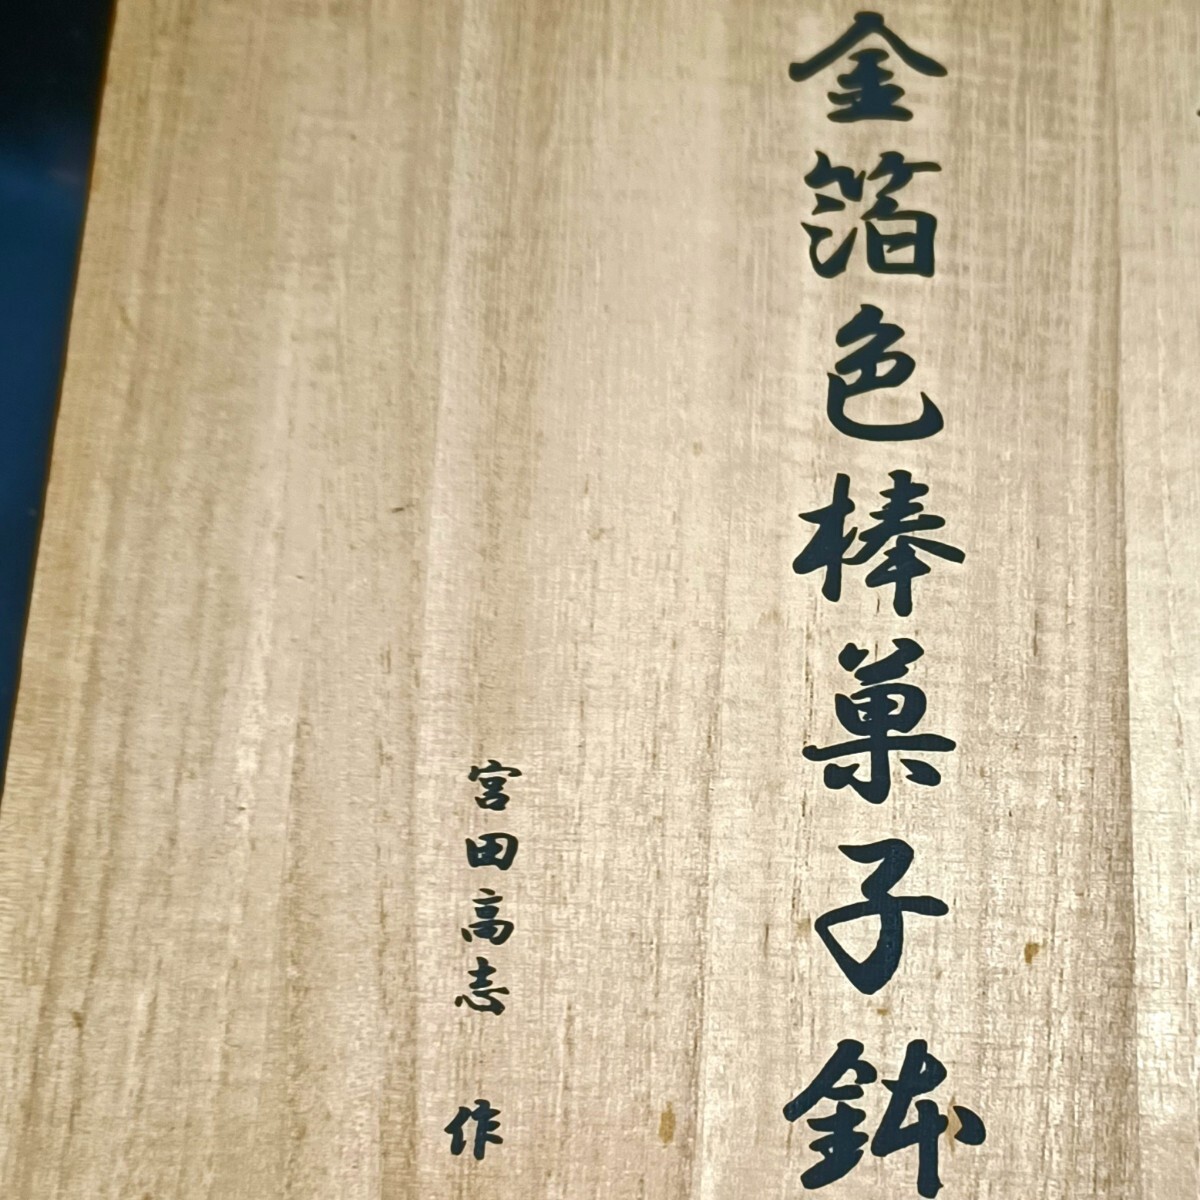 金箔色棒菓子鉢
宮田高志 作